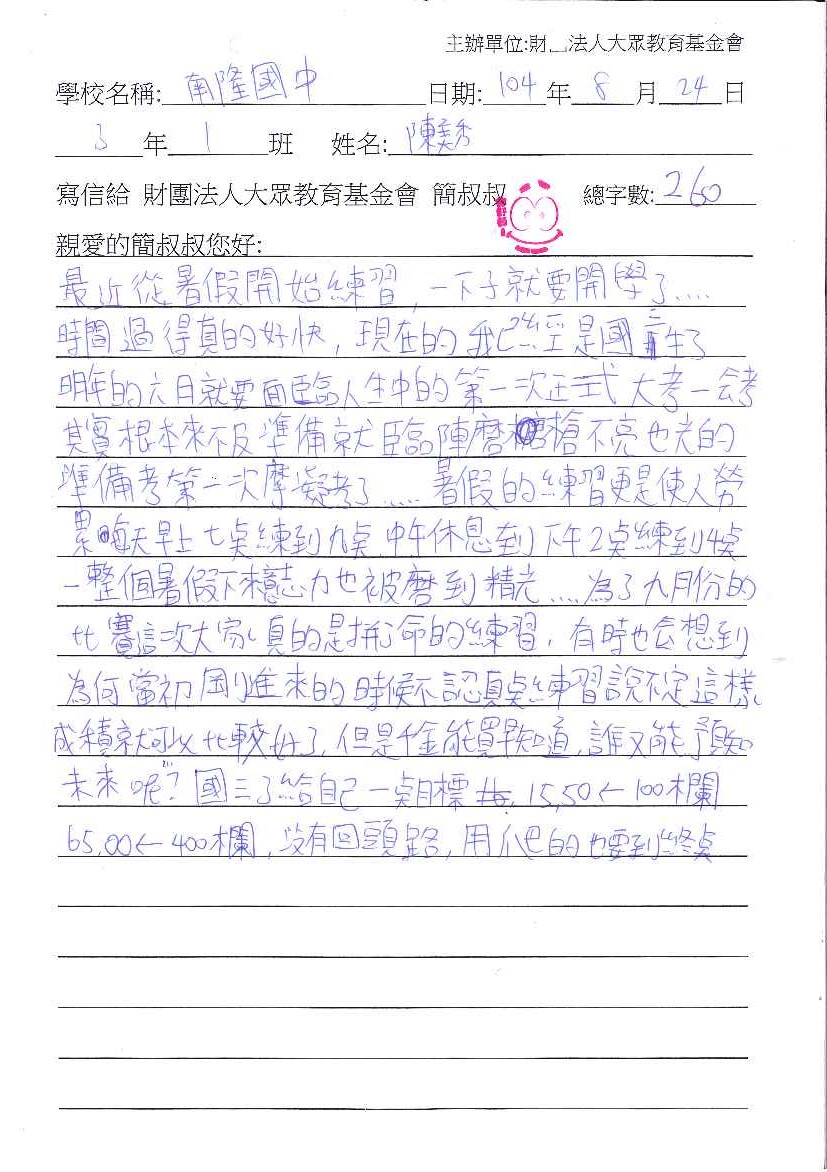 主辦單位:財 法人大眾教育基金會
學校名稱: 南隆國中 日期: 104 年 8 月 24 日
3 年 1 班 姓名: 陳美秀
寫信給 財團法人大眾教育基金會 簡叔叔 總字數: 260
親愛的簡叔叔您好:
最近從暑假開始練習,一下子就要開學了....
時間過得真的好快,現在的我已經是國三生了
明年的六日就要面臨人生中的第一次正式大考—会考
其實根本來不及準備就臨陣磨槍不亮也光的
準備考第一次摩擬考了.....暑假的練習更是使人勞
累每天早上七桌練到九桌中午休息到下午2桌練到4桌
一整個暑假下來意志力也被磨到精光....為了九月份的
比賽這次大家真的是拼了命的練習,有時也会想到
為何當初剛進來的時候不認真桌練習說不定這樣
成積就可以比較好了,但是千金能買早知道,誰又能預知
未來呢?國三了給自己一桌目標 15,50←100欄
65,00←400欄,沒有回頭路,用爬的也要到終桌